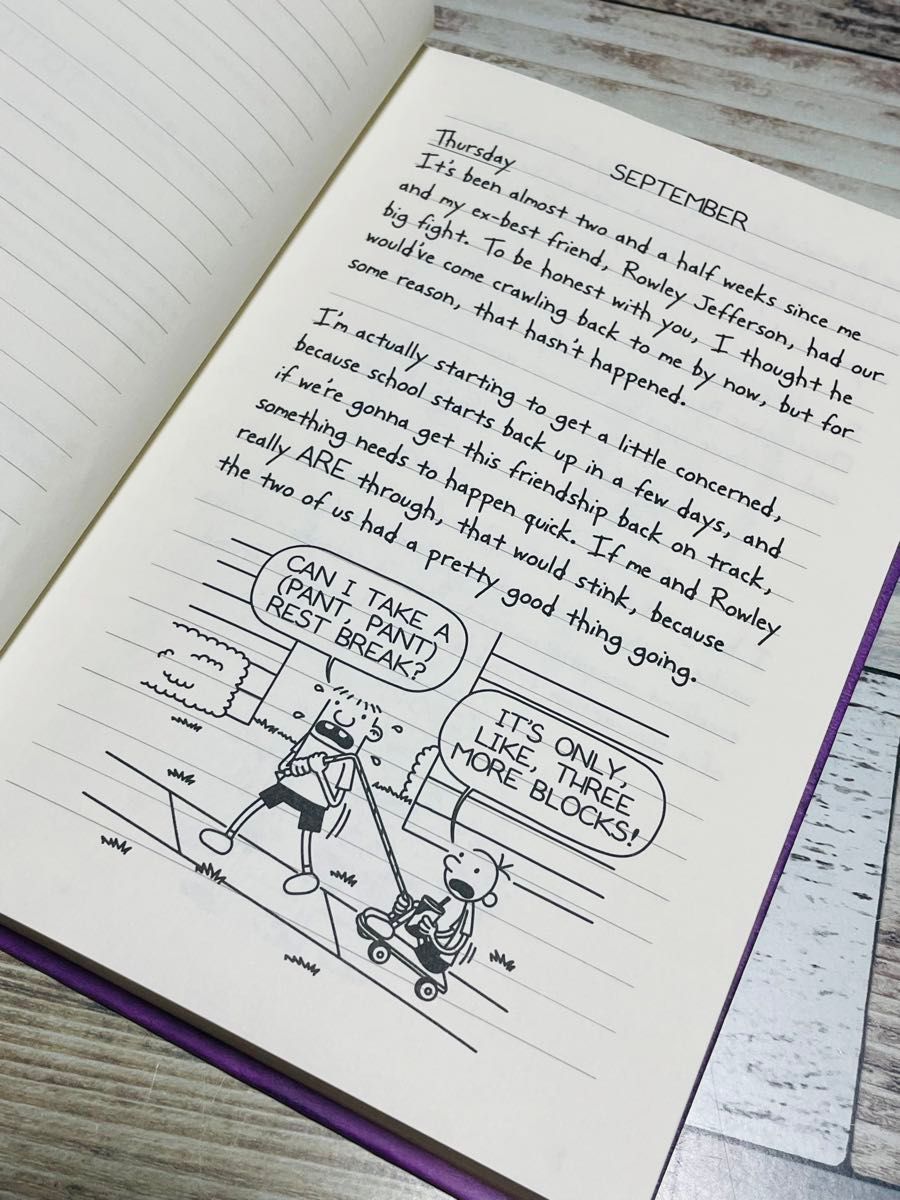 SEPTEMBER
Thursday
It's been almost two and a half weeks since me
and my ex-best friend, Rowley Jefferson, had our
big fight. To be honest with you, I thought he
would've come crawling back to me by now, but for
some reason, that hasn't happened.
I'm actually starting to get a little concerned,
because school starts back up in a few days, and
if we're gonna get this friendship back on track,
something needs to happen quick. If me and Rowley
really ARE through, that would stink, because
the two of us had a pretty good thing going.
CAN I TAKE A
(PANT, PANT)
REST BREAK?
IT'S ONLY,
LIKE, THREE
MORE BLOCKS!